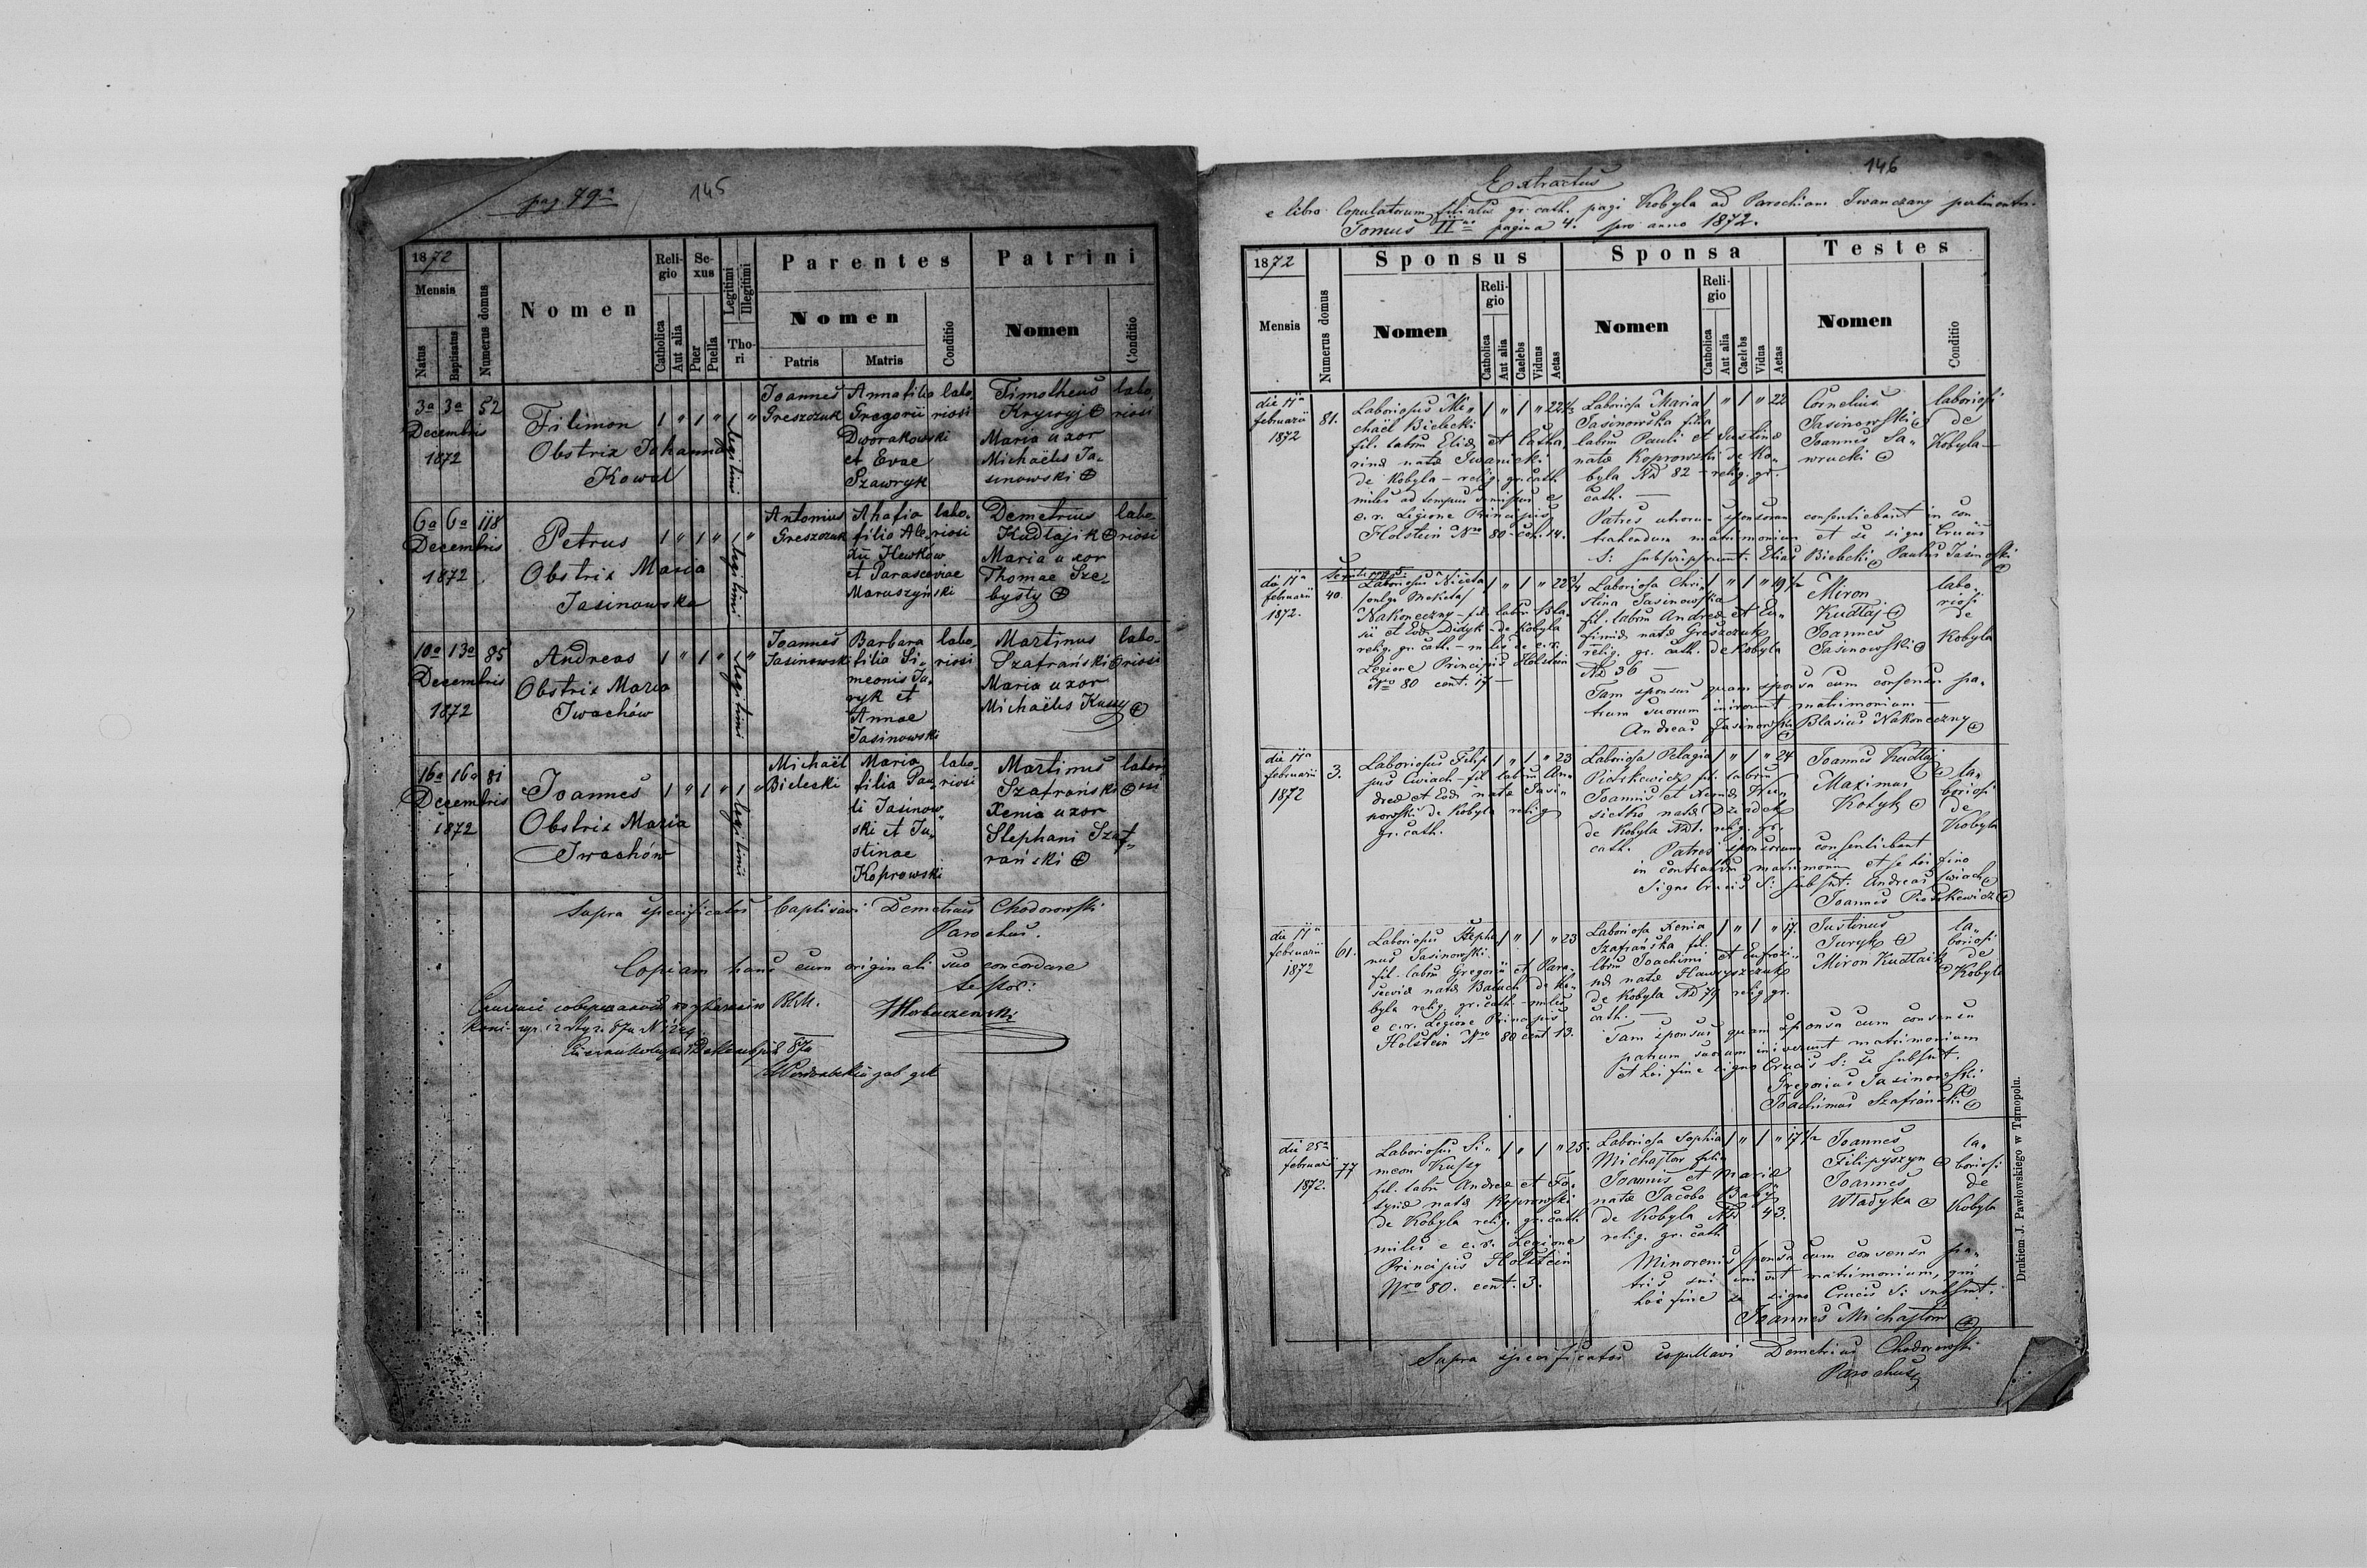 pag. 79a
145
1872
Mensis
Natus
Baptisatus
Numerus domus
Nomen
Religio
Catholica
Aut alia
Sexus
Puer
Puella
Legitimi
Illegitimi
Thori
Parentes
Nomen
Patris
Matris
Conditio
Patrini
Nomen
Conditio
3a 3a 52
Decembris
1872
Filimon
Obstrix Johanna
Kowal
1 " 1 " 1 "
legitimi
Joannes
Greszczuk
Anna filia
Gregorii
Dworakowski
et Evae
Szawryk
labo„
riosi
Timotheus
Krywyj
Maria uxor
Michaëlis Ja„
sinowski
labo„
riosi
6a 6a 118
Decembris
1872
Petrus
Obstrix Maria
Jasinowska
1 " 1 " 1 "
legitimi
Antonius
Greszczuk
Ahafia
filia Ale„
xii Hewków
et Parasceviae
Maruszyński
labo„
riosi
Demetrius
Kudłajik
Maria uxor
Thomae Sze„
bysty
labo„
riosi
10a 13a 85
Decembris
1872
Andreas
Obstrix Maria
Iwachów
1 " 1 " "
legitimi
Joannes
Jasinowski
Barbara
filia Si„
meonis Ju„
ryk et
Annae
Jasinowski
labo„
riosi
Martinus
Szafrański
Maria uxor
Michaëlis Kussy
labo„
riosi
16a 16a 81
Decembris
1872
Joannes
Obstrix Maria
Iwachów
1 " 1 " 1 "
legitimi
Michaël
Bielecki
Maria
filia Pau„
li Jasinow„
ski et Ju„
stinae
Koprowski
labo„
riosi
Martinus
Szafrański
Xenia uxor
Stephani Szaf„
rański
labori
osi
Supra specificatos baptisavi Demetrius Chodorowski
Parochus.
Copiam hanc cum originali suo concordare
testor:
146
Extractus
e libro Copulatorum filialis gr. cath. pagi Kobyla ad Parochiam Iwanczany pertinentis.
Tomus II pagina 4. pro anno 1872.
1872
Mensis
Numerus domus
Sponsus
Nomen
Religio
Catholica
Aut alia
Caelebs
Viduus
Aetas
Sponsa
Nomen
Religio
Catholica
Aut alia
Caelebs
Vidua
Aetas
Testes
Nomen
Conditio
die 11a
februarii
1872
81.
Laboriosus Mi„
chaël Bielecki
fil. labrm Eliae et Catha
rinae natae Iwanicki
de Kobyla – relig. gr. cath.
miles ad tempus dimissus e
c. r. Legione Principis
Holstein Nro 80 cent. 14.
Laboriosa Maria
Jasinowska filia
labrm Pauli et Justinae
natae Koprowski de Ko„
byla ND 82 – relig. gr.
cath. –
1 " 1 " 22
Cornelius
Jasinowski
Joannes Sa„
wrucki
laboriosi
de
Kobyla
Patres utrorum sponsorum consentiebant in con
trahendum matrimonium et se signo Crucis
S: subscripserunt. Elias Bielecki Paulus Jasinowski
die 11a
februarii
1872.
40.
Laboriosus Niceta
Nakoneczny – fil. labrm Bla„
sii et Eud. Didyk – de Kobyla
relig. gr. cath. – miles e c. r.
Legione Principis Holstein
Nro 80 cent. 17 –
Laboriosa Chri„
stina Jasinowska
fil. labrm Andreae et Eu„
fimiae natae Greszczuk
relig. gr. cath. de Kobyla
ND 36 –
1 " 1 " 19 1/2
Miron
Kudłaj
Joannes
Jasinowski
labo„
riosi
de
Kobyla
Tam sponsus quam sponsa cum consensu pa„
trum suorum inierunt matrimonium –
Andreas Jasinowski Blasius Nakoneczny
die 11a
februarii
1872
3.
Laboriosus Filip
pus Cwiach – fil. labrm An„
dreae et Eud. natae Jasi„
nowski de Kobyla relig
gr. cath.
1 " 1 " 23
Laboriosa Pelagia
Piotrkewicz fil. labrm
Joannis et Xeniae
de Kobyla ND 1. relig. gr.
cath.
1 " 1 " 24
Joannes Kudłaj
Maximus
Kotyk
la„
boriosi
de
Kobyla
Patres sponsorum consentiebant
in contrahendum matrimonium et se hoc fine
signo Crucis S: subsnt. Andreas Cwiach
Joannes Piotrkewicz
die 11a
februarii
1872
61.
Laboriosus Stepha
nus Jasinowski
fil. labrm Gregorii et Para„
sceviae natae Baluch de Ko„
byla relig. gr. cath. – miles
e c. r. Legione Principis
Holstein Nro 80 cent. 13.
1 " 1 " 23
Laboriosa Xenia
Szafrańska fil.
lbrm Joachimi et Eufrozi„
nae natae Hawryszczuk
de Kobyla ND 79 relig. gr.
cath. –
1 " 1 " 17.
Justinus
Juryk
Miron Kudłaik
la„
boriosi
de
Kobyla
Tam sponsus quam sponsa cum consensu
patrum suorum inierunt matrimonium
et hoc fine signo Crucis S: se subsnt.
Gregorius Jasinowski
Joachimus Szafrański
die 25a
februarii
1872.
77
Laboriosus Si„
meon Kussy
fil. labrm Andreae et Ta„
tyanae natae Koprowski
de Kobyla relig. gr. cath.
miles e c. r. Legione
Principis Holstein
Nro 80. cent. 3.
1 " 1 " 25.
Laboriosa Sophia
Michajłów filia
Joannis et Mariae
natae Jacobo Babij
de Kobyla ND 43.
relig. gr. cath
1 " 1 " 17 1/2
Joannes
Filipyszyn
Joannes
Władyka
la„
boriosi
de
Kobyla
Minorenis sponsa cum consensu pa„
tris sui inivit matrimonium, qui
hoc fine se signo Crucis S: subsnt.
Joannes Michajłow
Supra specificatos copulavi Demetrius Chodorowski
Parochus
Drukiem J. Pawłowskiego w Tarnopolu.